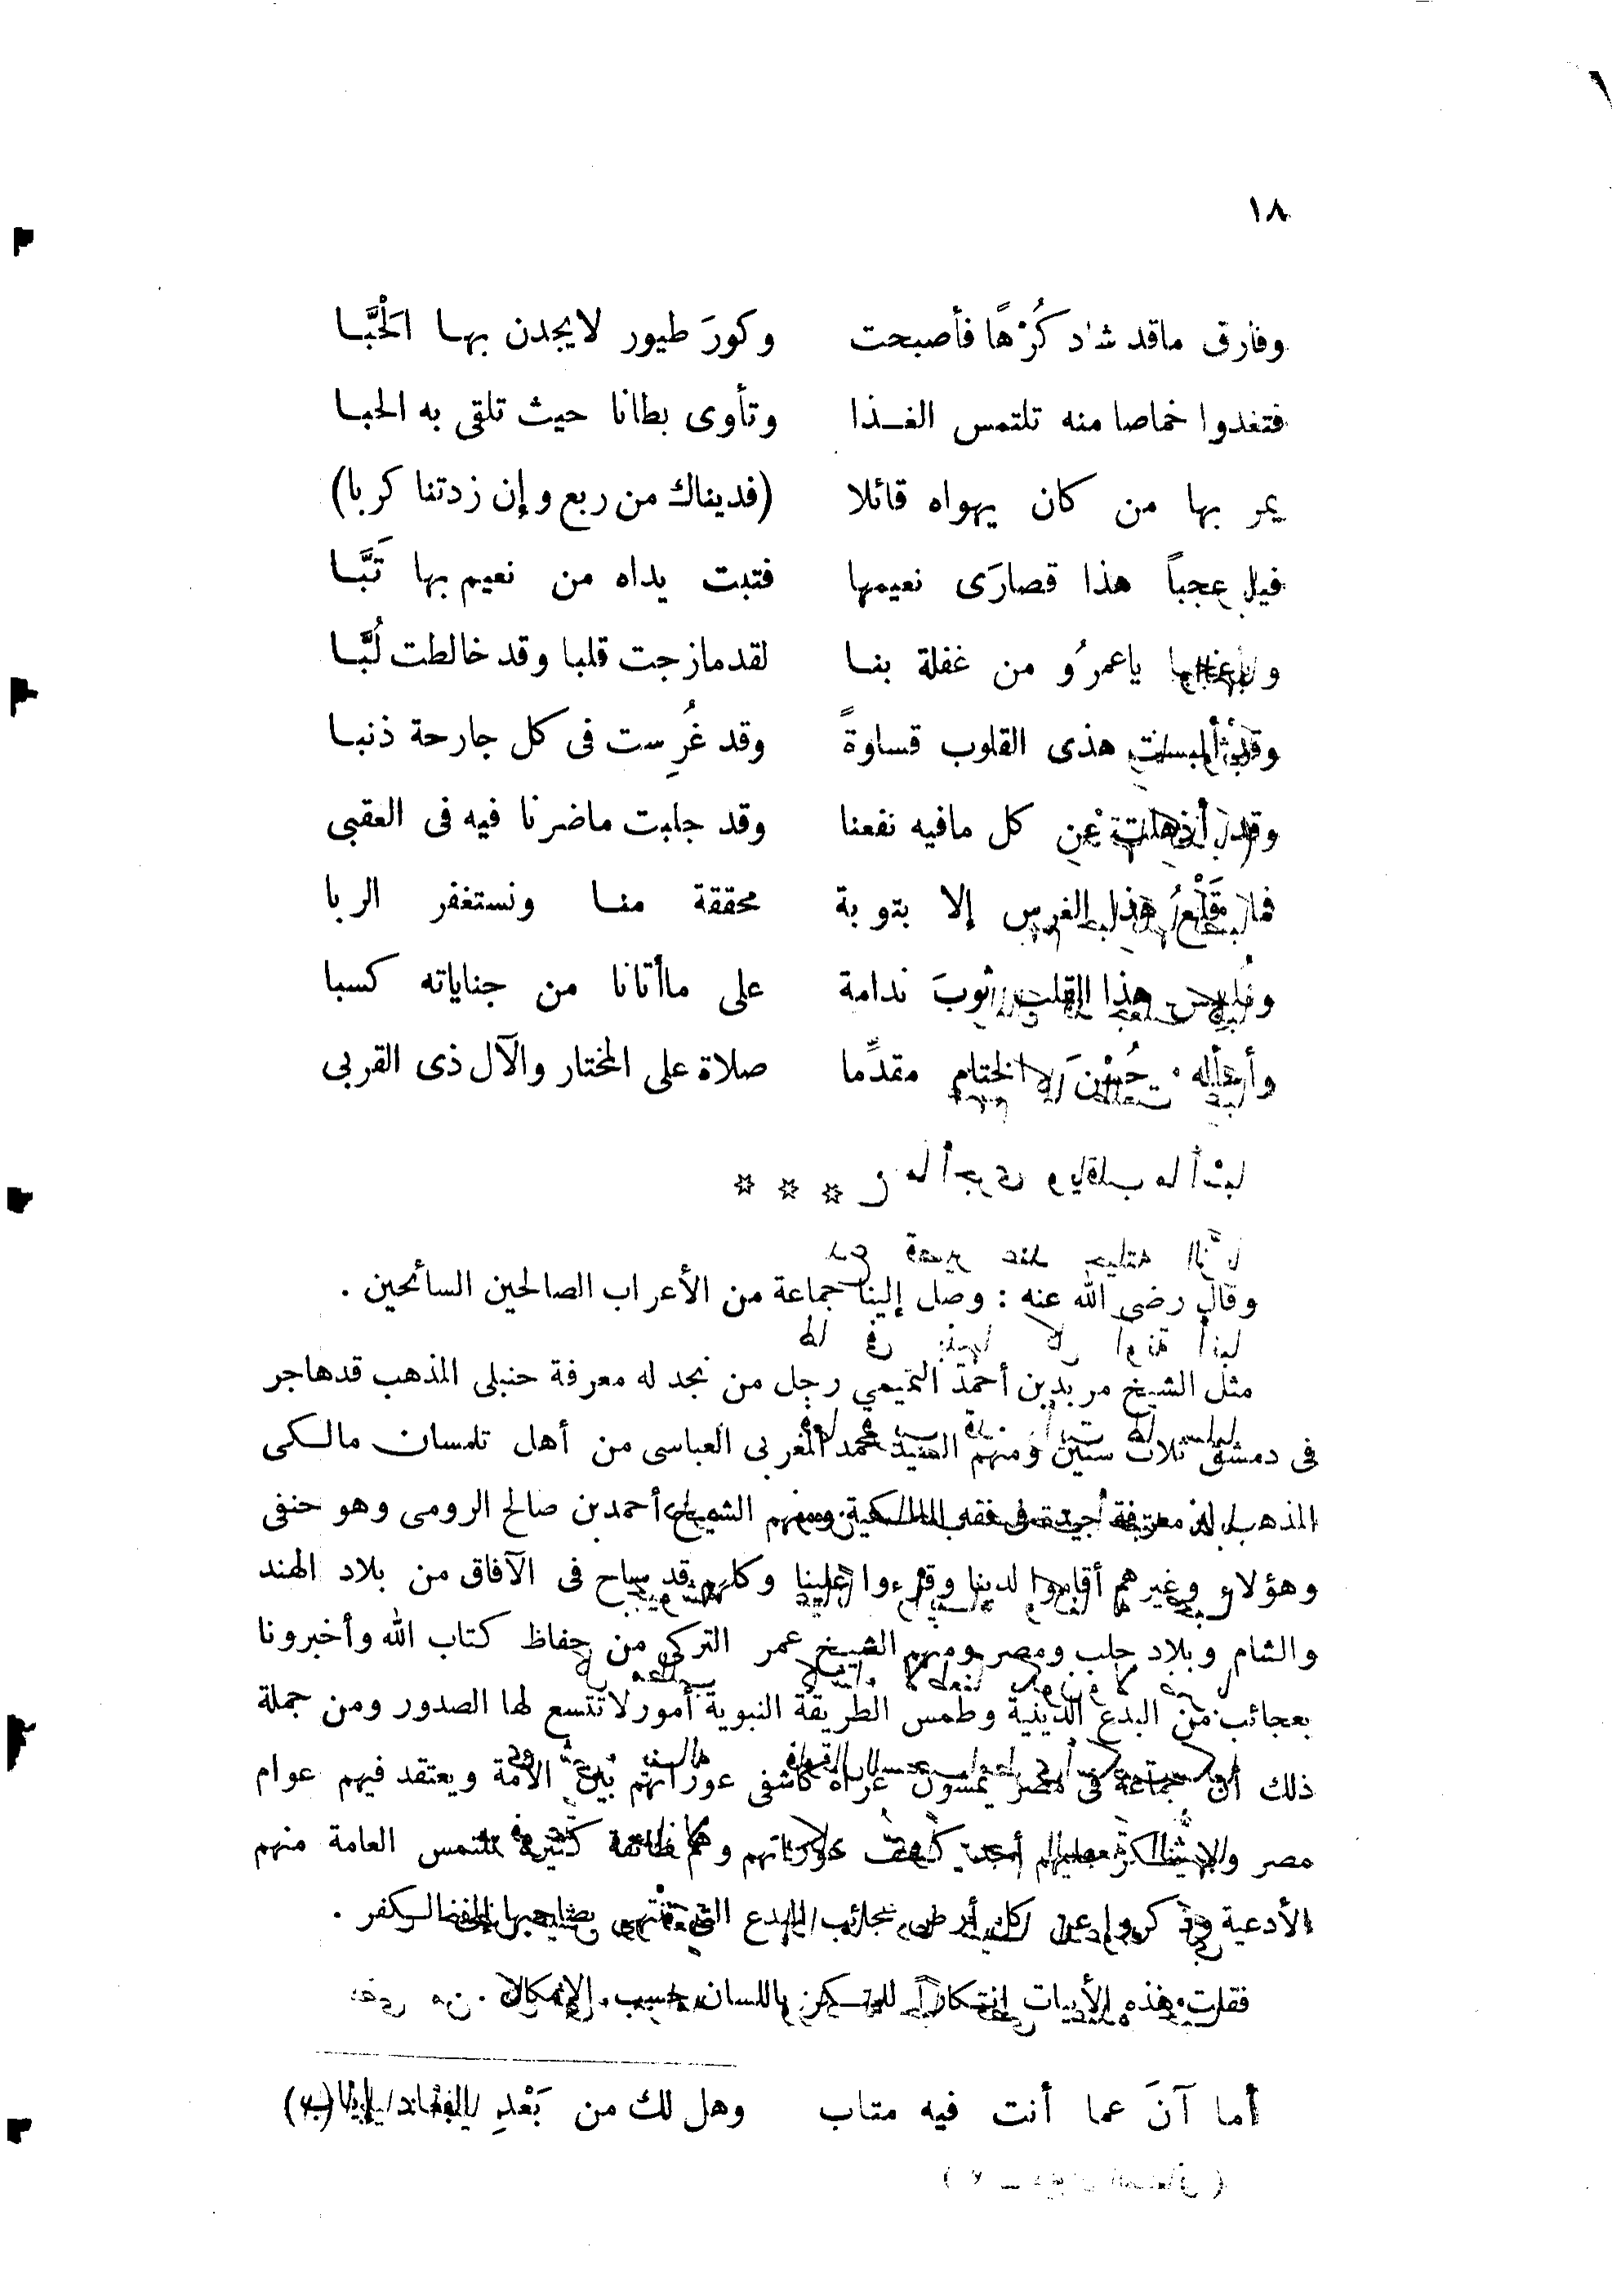 ١٨
وفارق ماقد شاد كُرْهًا فأصبحت وكورَ طيور لايجدن بها الحَبَّا
فتغدوا خماصا منه تلتمس الغذا وتأوى بطانا حيث تلقى به الحبا
يمر بها من كان يهواه قائلا (فديناك من ربع وإن زدتنا كربا)
عجباً هذا قصارَى نعيمها فتبت يداه من نعيم بها تَبَّا
ياعمرُو من غفلة بنا لقد مازجت قلبا وقد خالطت لُبَّا
وقد ألبست هذى القلوب قساوةً وقد غُرِست فى كل جارحة ذنبا
وقد أذهلت عن كل مافيه نفعنا وقد جلبت ماضرنا فيه فى العقبى
فما قَلْعُ هذا الغرس إلا بتوبة محققة منا ونستغفر الربا
هذا القلب ثوبَ ندامة على ماأتانا من جناياته كسبا
وأسأله حُسْنَ الختام مقدمًا صلاة على المختار والآل ذى القربى
* * *
وقال رضى الله عنه : وصل إلينا جماعة من الأعراب الصالحين السائحين .
مثل الشيخ مربد بن أحمد التميمي رجل من نجد له معرفة حنبلى المذهب قد هاجر
فى دمشق ثلاث سنين ومنهم السيد محمد المغربى العباسى من أهل تلمسان مالكى
المذهب له معرفة جيدة فى فقه المالكية ومنهم الشيخ أحمد بن صالح الرومى وهو حنفى
وهؤلاء وغيرهم أقاموا لدينا وقرءوا علينا وكلهم قد ساح فى الآفاق من بلاد الهند
والشام وبلاد حلب ومصر ومنهم الشيخ عمر التركى من حفاظ كتاب الله وأخبرونا
بعجائب من البدع الدينية وطمس الطريقة النبوية أمور لاتتسع لها الصدور ومن جملة
ذلك أن جماعة فى مصر يمشون عراة كاشفى عوراتهم بين الأمة ويعتقد فيهم عوام
مصر ولا ينكر عليهم أحد كشف عوراتهم وهم طائفة كثيرة تلتمس العامة منهم
الأدعية وذكروا عن كل أرض عجائب البدع التى تنتهى بصاحبها إلى الكفر .
فقلت هذه الأبيات إنكاراً للمنكر باللسان حسب الإمكان .
أما آنَ عما أنت فيه متاب وهل لك من بَعْدِ البعاد إياب